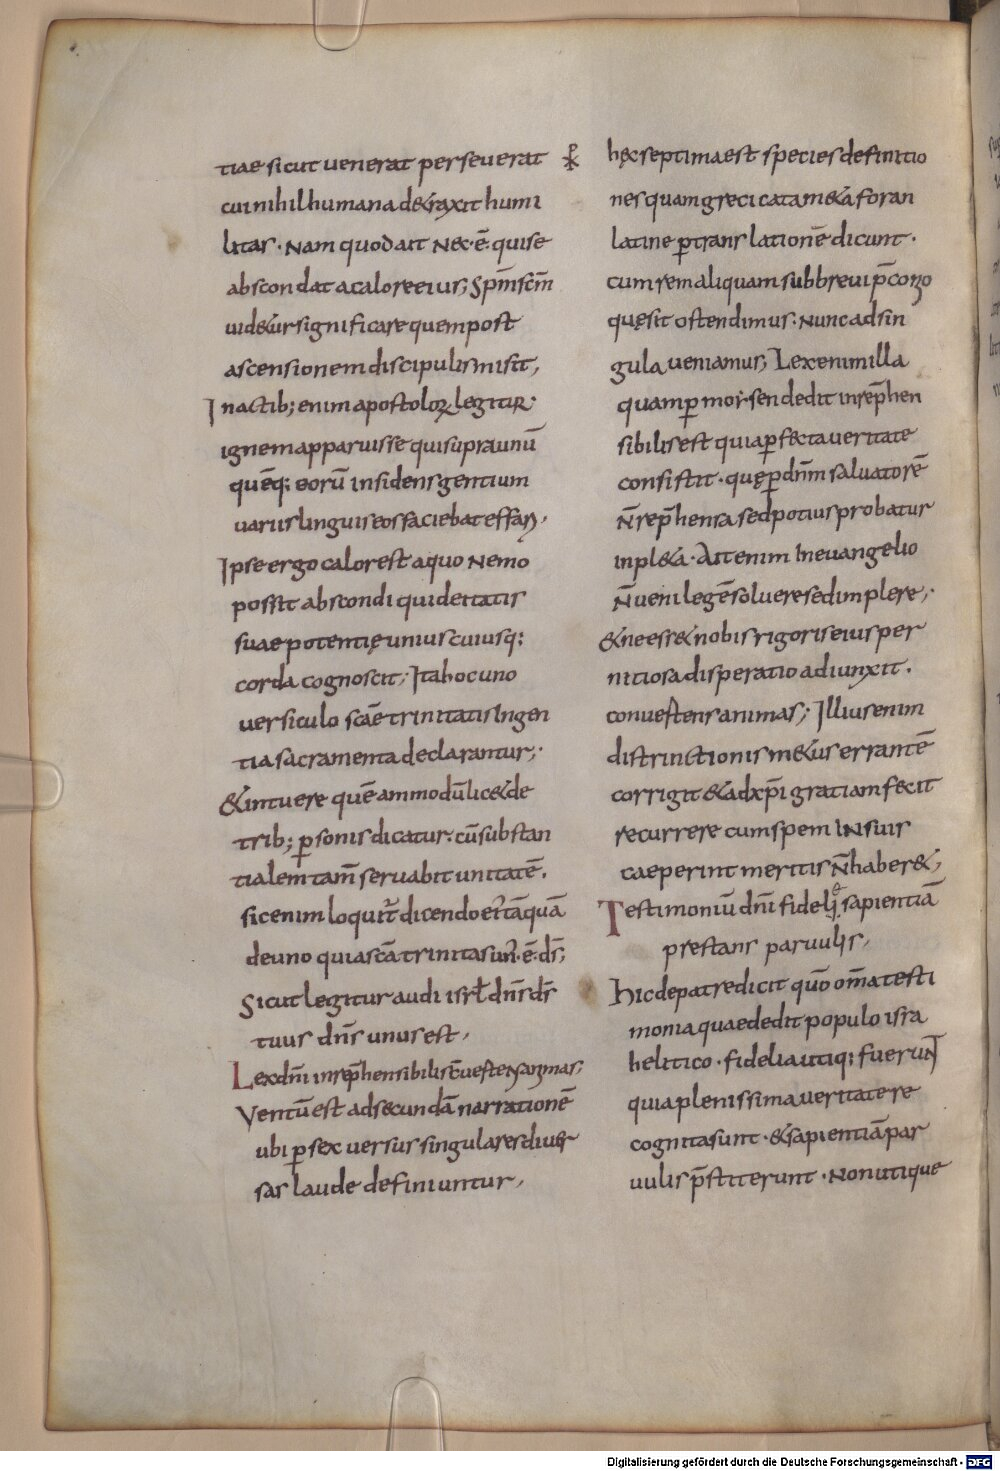 tiae sicut uenerat perseuerat
cui nihil humana de&raxit humi
litas · Nam quod ait Nec · ē quise
abscondat a calore eius; Sp̄m sc̄m
uid&ur significare quem post
ascensionem discipulis misit;
Inactib; enim apostoloꝝ legitur ·
ignem apparuisse qui supra unū
quēq; eorū insidens gentium
uariis linguis eos faciebat effari;
Ipse ergo calor est a quo Nemo
possit abscondi qui deitatis
suae potentię uniuscuiusq;
corda cognoscit; Ita hoc uno
uersiculo sc̄ae trinitatis Ingen
tia sacramenta declarantur;
& intuere quēammodū lic& de
trib; ꝑsonis dicatur · cū substan
tialem tam̄ seruabit unitatē ·
sic enim loquit̄ dicendo ei t̄a quā
de uno quia sc̄a trinitas un · ē · ds̄;
Sicut legitur audi isrl̄ dn̄s ds̄
tuus dn̄s unus est;
Lex dn̄i inrep̄hensibilis c̄uestens animas;
Ventū est ad secundā narrationē
ubi ꝑ sex uersus singulares diuer
sas laude definiuntur;
⳩
hęc septima est species definitio
nes quam greci cata meaforan
latine ꝑ translationē dicunt ·
cum rem aliquam sub breui p̄conio
quę sit ostendimus · Nunc ad sin
gula ueniamus; Lex enim illa
quam ꝑ moysen dedit inrep̄hen
sibilis est quia ꝑfecta ueritate
consistit · quę ꝑ dn̄m saluatorē
n̄ rep̄hensa sed potius probatur
inpl&a · Ait enim In euangelio
N̄ ueni legē soluere sed implere;
& ne ess& nobis rigoris eius per
nitiosa disperatio adiunxit ·
conuestens animas; Illius enim
districtionis m&us errantē
corrigit & ad xp̄i gratiam fecit
recurrere cum spem IN suis
caeperint meritis n̄ haber&;
Testimoniū dn̄i fideli sapientiā
prestans paruulis;
Hic de patre dicit quō om̄a testi
monia quae dedit populo isra
helitico · fidelia utiq; fuerunt
quia plenissima ueritate re
cognita sunt · & sapientiā par
uulis p̄stiterunt · Non utique
Digitalisierung gefördert durch die Deutsche Forschungsgemeinschaft - DFG